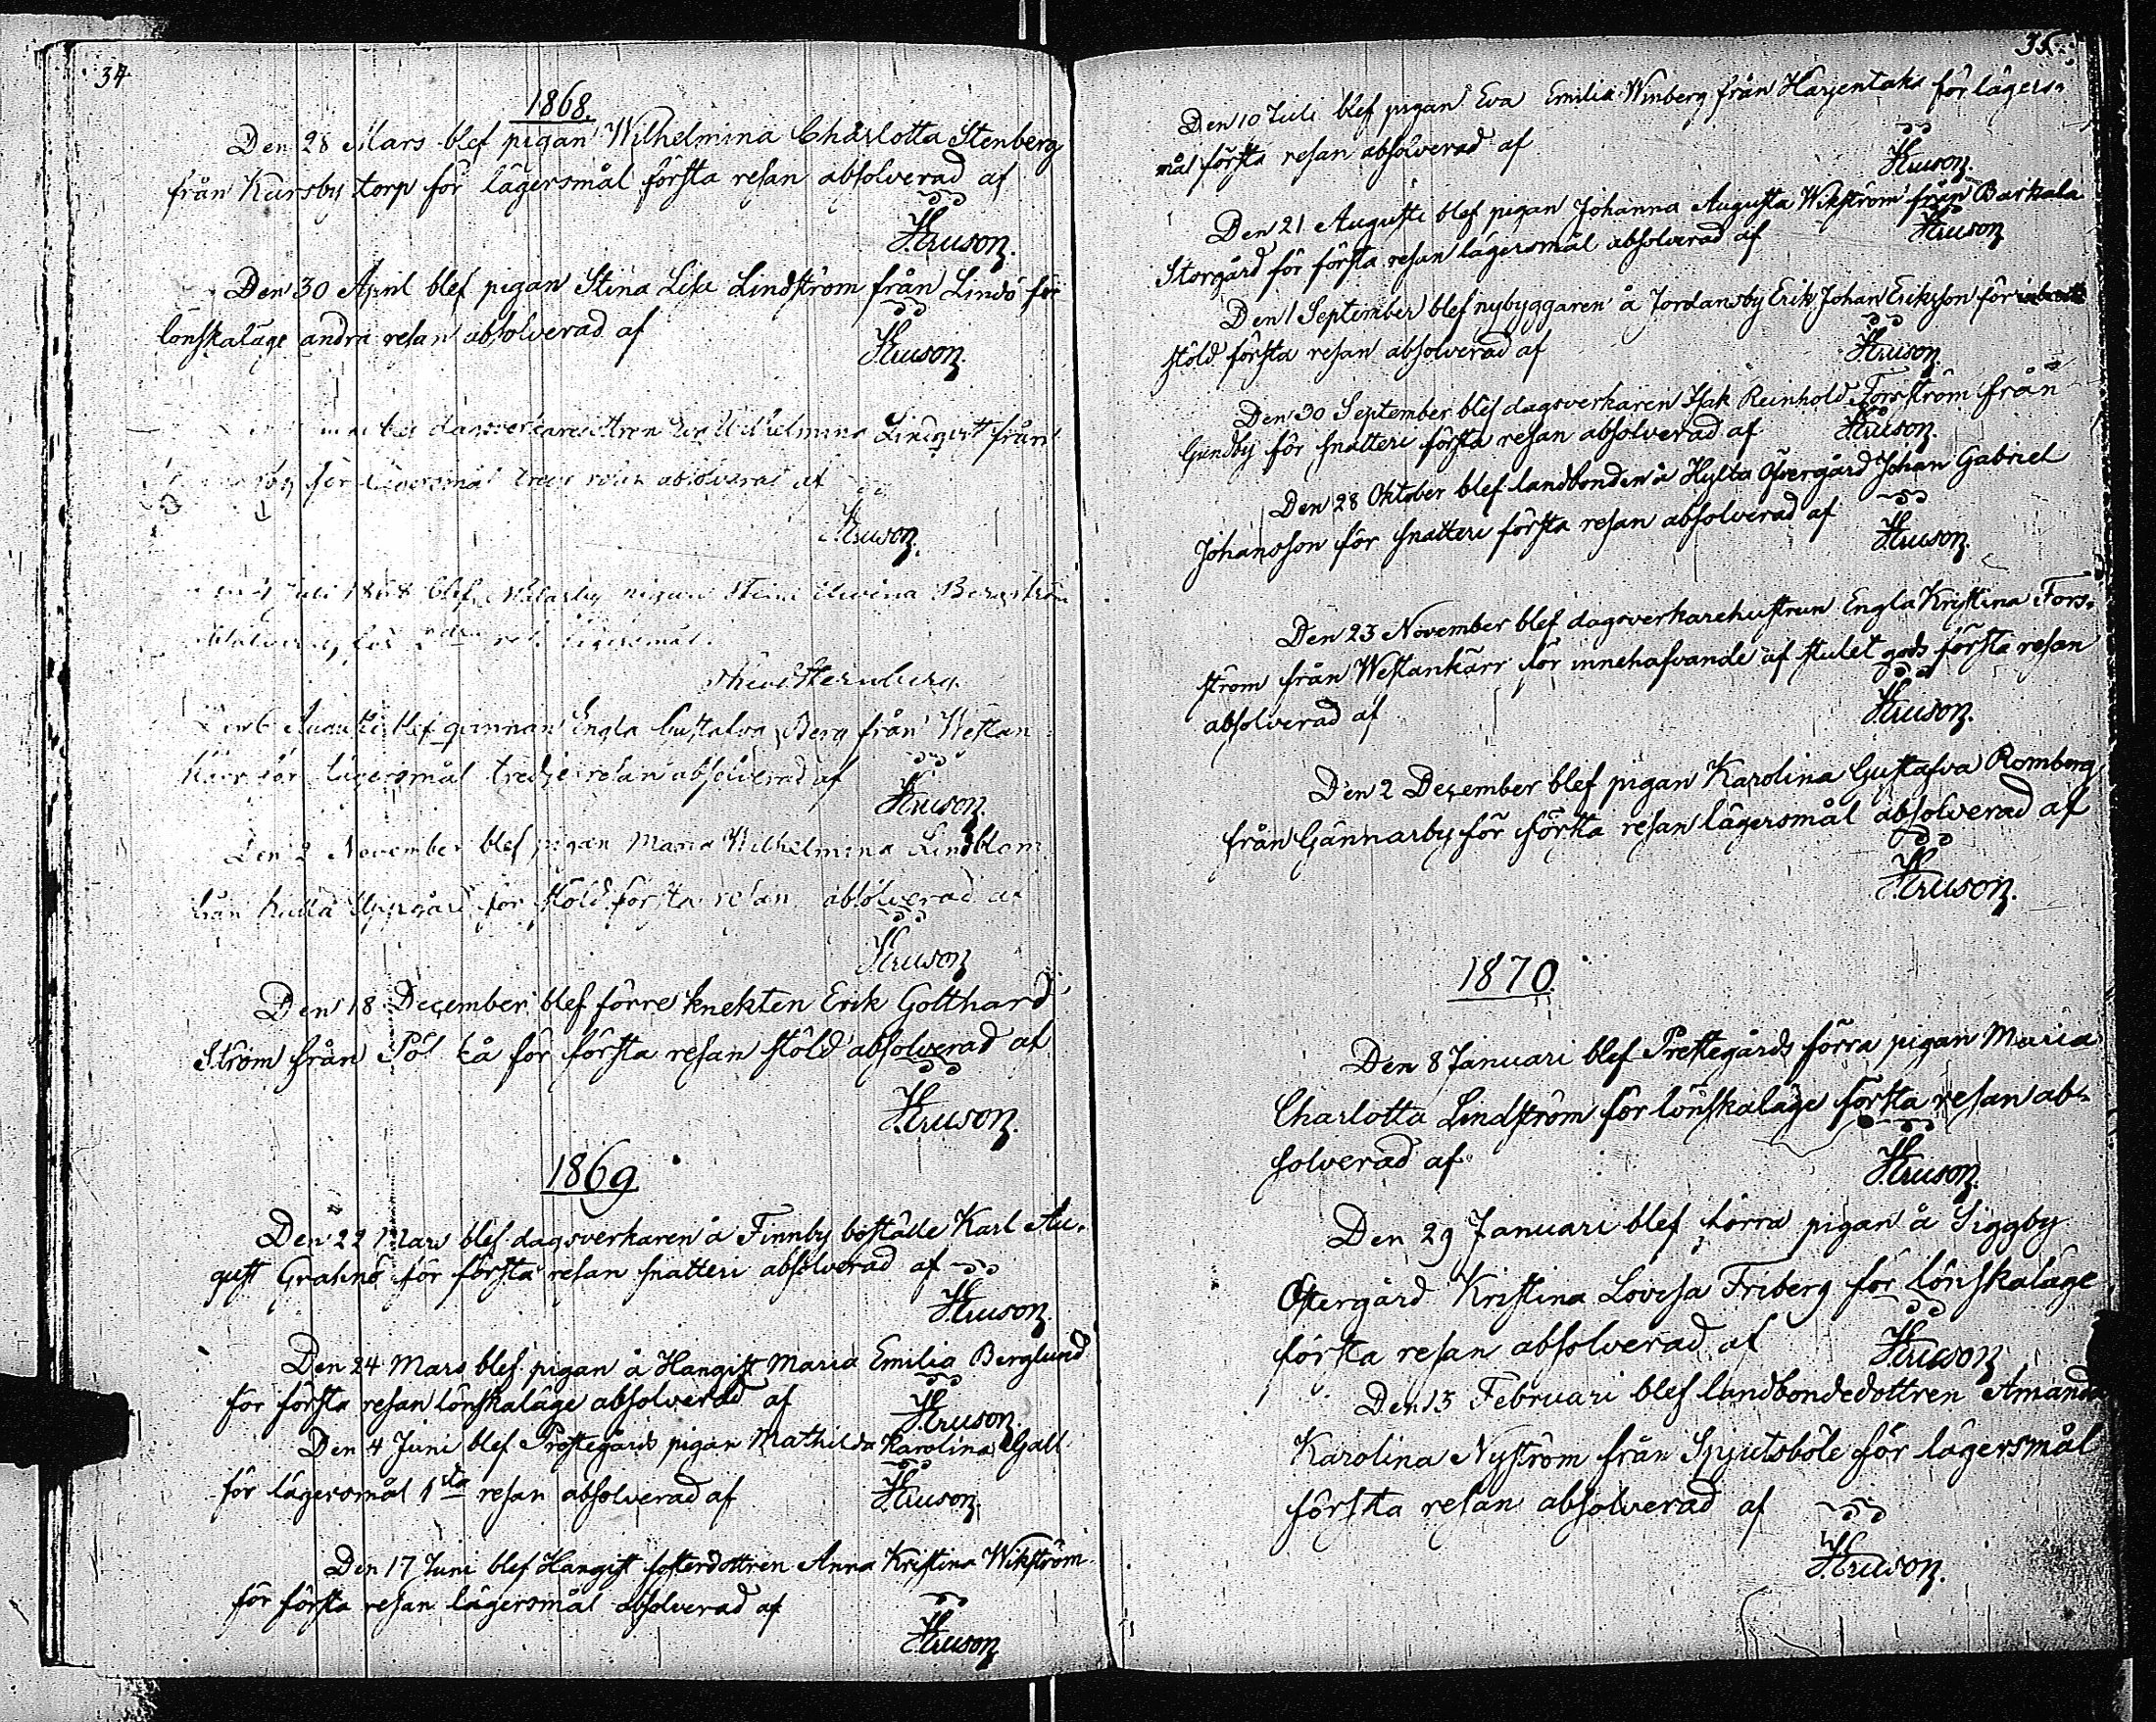 34
1868.
Den 28 Mars blef pigan Wilhelmina Charlotta Stenberg
från Karsby torp för lägersmål första resan absolverad af
Kruson.
Den 30 April blef pigan Stina Lisa Lindström från Lindö för
lönskaläge andra resan absolverad af
Kruson.
dagsverkare Wilhelmina Lindqvist från
för lägersmål resan absolverad af
Kruson.
Juli 1868 blef pigan Stina Bergström
för 2dra res. lägersmål.
Sternberg.
Den 6 Augusti blef qvinnan Engla Gustafva Berg från Westan
kärr för lägersmål tredje resan absolverad af
Kruson.
Den 2 November blef pigan Maria Wilhelmina Lindblom
från Kulla Uppgård för stöld första resan absolverad af
Kruson
Den 18 December blef förre knekten Erik Gotthard
Ström från för första resan stöld absolverad af
Kruson.
1869
Den 22 Mars blef dagsverkaren å Finnby boställe Karl Au-
gust Grahnö för första resan snatteri absolverad af
Kruson.
Den 24 Mars blef pigan å Hangist Maria Emilia Berglund
för första resan lönskaläge absolverad af
Kruson.
Den 4 Juni blef Prostegårds pigan Mathilda Karolina Gall
för lägersmål 1sta resan absolverad af
Kruson.
Den 17 Juni blef Hangist fosterdottren Anna Kristina Wikström
för första resan lägersmål absolverad af
Kruson
35.
Den 10 Juli blef pigan Eva Emilia Winberg från Harjentaka för lägers-
mål första resan absolverad af
Kruson.
Den 21 Augusti blef pigan Johanna Augusta Wikström från Barkala
Storgård för första resan lägersmål absolverad af
Kruson
Den 1 September blef nybyggaren å Jordansby Erik Johan Eriksson för
stöld första resan absolverad af
Kruson.
Den 30 September blef dagsverkaren Isak Reinhold Forsström från
Gundby för snatteri första resan absolverad af
Kruson.
Den 28 Oktober blef landbonden å Hylta Öfvergård Johan Gabriel
Johansson för snatteri första resan absolverad af
Kruson.
Den 23 November blef dagsverkarehustrun Engla Kristina Fors-
ström från Westankärr för innehafvande af stulet gods första resan
absolverad af
Kruson.
Den 2 December blef pigan Karolina Gustafva Romberg
från Gännarby för första resan lägersmål absolverad af
Kruson.
1870
Den 8 Januari blef Prestegårds förra pigan Maria
Charlotta Lindström för lönskaläge första resan ab-
solverad af
Kruson.
Den 29 Januari blef förra pigan å Siggby
Östergård Kristina Lovisa Friberg för lönskaläge
första resan absolverad af
Kruson
Den 13 Februari blef landbondedottren Amanda
Karolina Nyström från Spjutsböle för lägersmål
första resan absolverad af
Kruson.